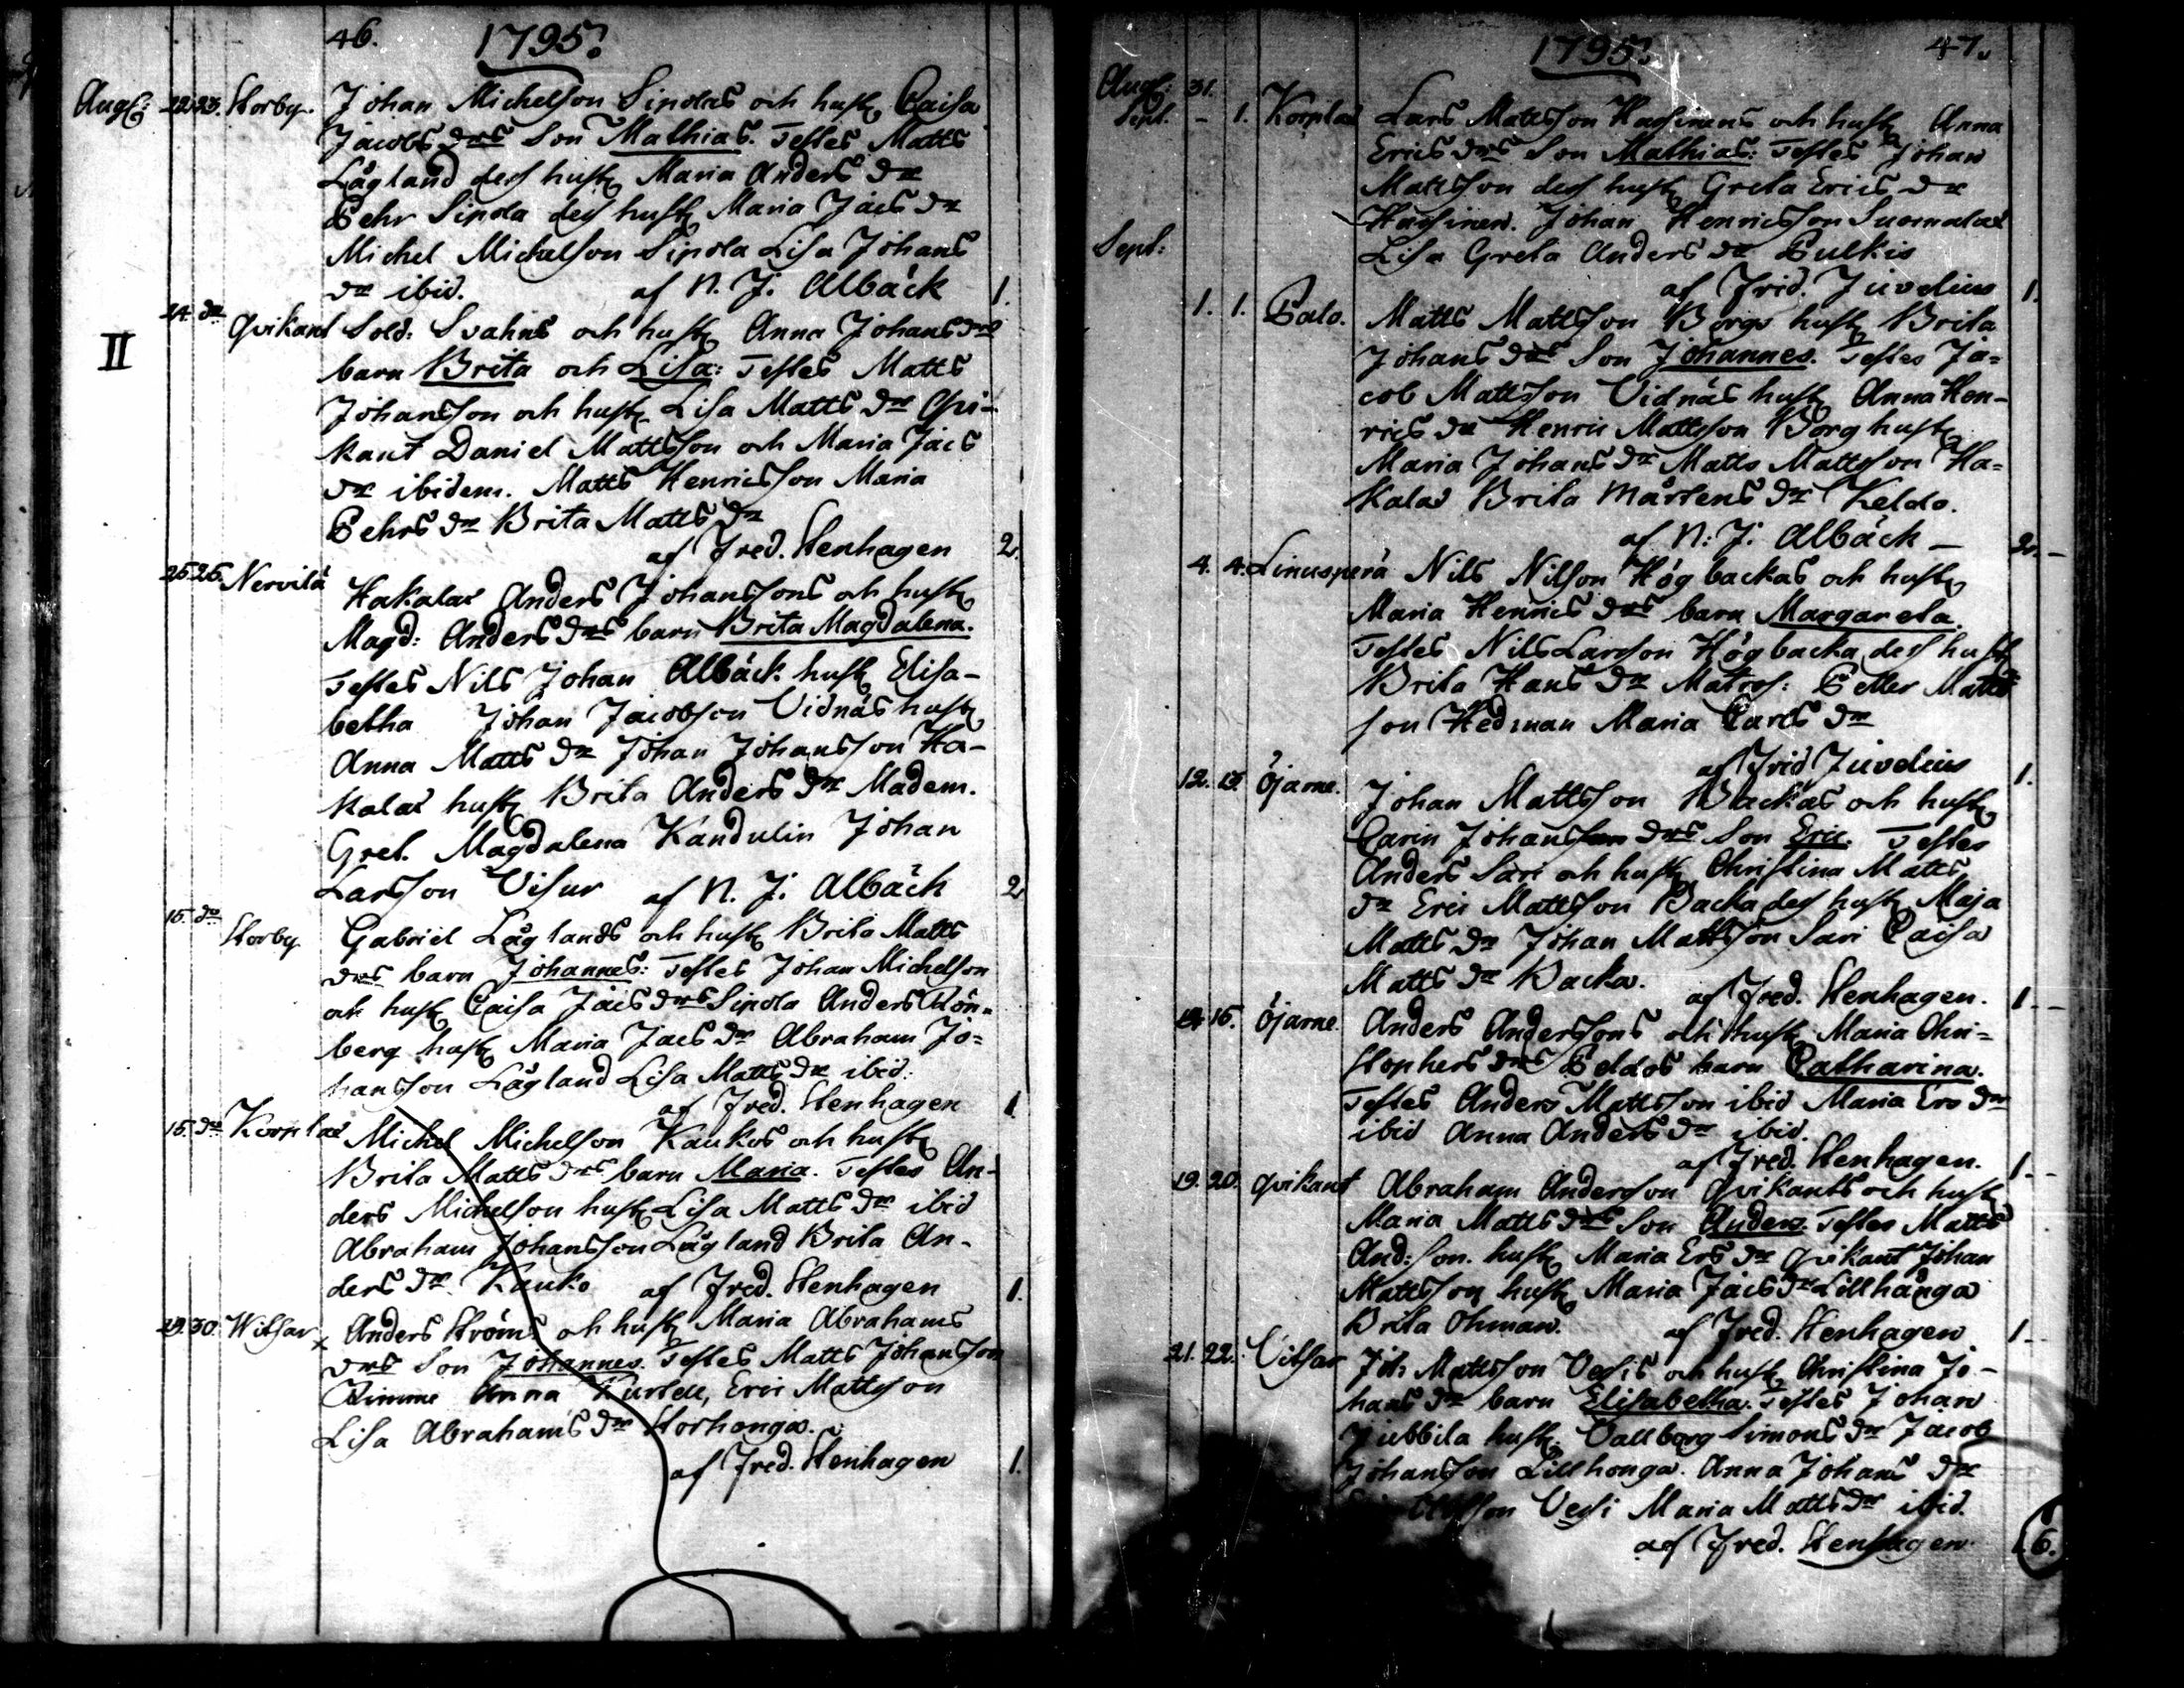 46. 1795.
Aug: 22. 23. Storby. Johan Michelson Sipolas och hust. Caisa
Jacobs drs Son Mathias. Testes Matts
Lågland dess hust. Maria Anders dr
Pehr Sipola dess hust. Maria Jacs dr
Michel Michelson Sipola Lisa Johans
dr ibid. af N. J. Albäck 1.
24. do Qvikant Sold: Svahns och hust. Anna Johans drs
II barn Brita och Lisa: Testes Matts
Johansson och hust. Lisa Matts dr Qvi-
kant Daniel Mattsson och Maria Jacs
dr ibidem. Matts Henricsson Maria
Pehrs dr Brita Matts dr
af Fred. Stenhagen 2.
25. 25. Nervilä Hakalas Anders Johanssons och hust.
Magd: Anders drs barn Brita Magdalena.
Testes Nils Johan Albäck hust. Elisa-
betha Johan Jacobson Vidnäs hust.
Anna Matts dr Johan Johansson Ha-
kalas hust. Brita Anders dr Madem.
Gret. Magdalena Kandulin Johan
Larsson Visur af N. J. Albäck 2
15. do Storby Gabriel Låglands och hust. Brita Matts
drs barn Johannes: Testes Johan Michelson
och hust. Caisa Jacs drs Sipola Anders Rön-
berg hust. Maria Jacs dr Abraham Jo-
hansson Lågland Lisa Matts dr ibid.
af Fred. Stenhagen 1
15. do Korplax Michel Michelson Kaukos och hust.
Brita Matts drs barn Maria. Testes An-
ders Michelson hust. Lisa Matts dr ibid
Abraham Johansson Lågland Brita An-
ders dr Kauko af Fred. Stenhagen 1.
29. 30. Witsar x Anders Ströms och hust. Maria Abrahams
drs Son Johannes. Testes Matts Johansson
Rimme Anna Eric Mattsson
Lisa Abrahams dr Storhonga.
af Fred. Stenhagen 1.
1795. 47.
Aug: 31.
Sept. - 1. Korplax Lars Mattsson Hassinens och hust. Anna
Erics drs Son Mathias: Testes Johan
Mattsson dess hust. Greta Erics dr
Hassinen. Johan Henricsson Suomalas
Sept: Lisa Greta Anders dr Pulkis
af Frid. Juvelius 1.
1. 1. Palo. Matts Mattsson Borgs hust. Brita
Johans drs Son Johannes. Testes Ja-
cob Mattsson Vidnäs hust. Anna Hen-
rics dr Henric Mattsson Borg hust.
Maria Johans dr Matts Mattsson Ha-
kalas Brita Mårtens dr Keldo.
af N: J: Albäck - 2. -
4. 4. Linusperä Nils Nilson Högbackas och hust.
Maria Henrics drs barn Margareta.
Testes Nils Larsson Högbacka dess hust.
Brita Hans dr Matros: Petter Matts
son Hedman Maria Carls dr
af Frid Juvelius 1.
12. 13. Öjarne. Johan Mattsson Backas och hust.
Carin Johans drs Son Eric. Testes
Anders Sari och hust. Christina Matts
dr Eric Mattsson Backa dess hust. Maja
Matts dr Johan Mattsson Sari Caisa
Matts dr Backa. af Fred. Stenhagen. 1. -
14. 15. Öjarne. Anders Anderssons och hust. Maria Chri-
stophers drs Peldos barn Catharina.
Testes Anders Mattsson ibid Maria Ers dr
ibid Anna Anders dr ibid.
af Fred. Stenhagen. 1. -
19. 20. Qvikant Abraham Anderson Qvikants och hust.
Maria Matts drs Son Anders. Testes Matts
And: son. hust. Maria Ers dr Qvikant Johan
Mattsson hust. Maria Jacs dr Lillhånga
Brita Ohman. af Fred. Stenhagen 1 -
21. 22. Vitsar Joh Mattsson Vesis och hust. Christina Jo-
hans dr barn Elisabetha: Testes Johan
Jubbila hust. Vallborg Simons dr Jacob
Johansson Lillhonga. Anna Johans dr
Vesi Maria Matts dr ibid.
af Fred. Stenhagen 1 6.